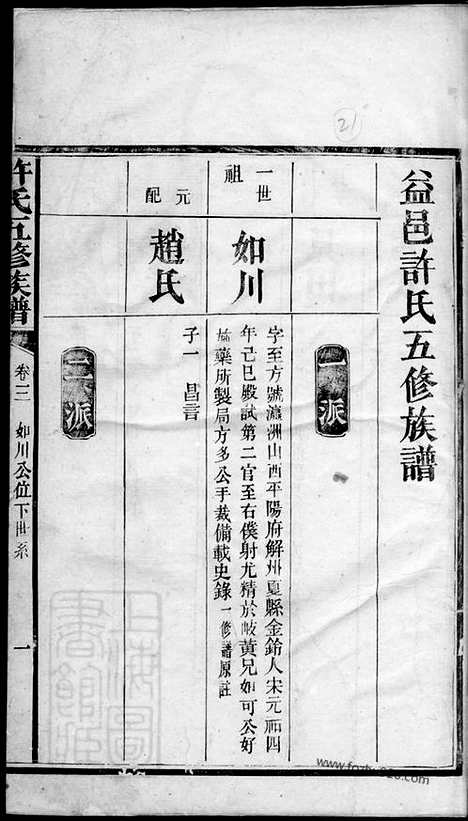 21
益邑許氏五修族譜
一派
一世祖
如川
字至方號瀛洲山西平陽府解州夏縣金鈴人宋元祐四
年己巳殿試第二官至右僕射尤精於岐黃兄如可公好
藥所製局方多公手裁備載史錄一修譜原註
元配
趙氏
子一 昌言
二派
許氏五修族譜
卷三 如川公位下世系
一
上海圖書館藏